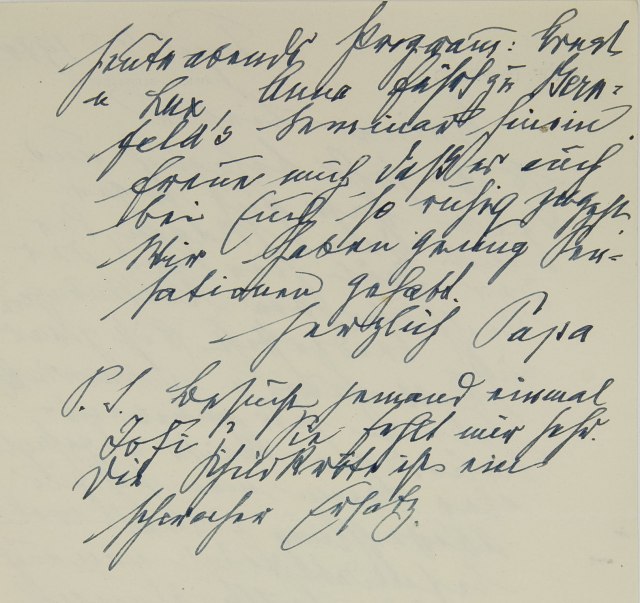 heute abends Programm: Ernst
u Lux Anna führt zu Bern-
feld's Seminar hinein.
Freue mich, daß es auch
bei Euch so ruhig zugeht
Wir haben genug Sen-
sationen gehabt.
Herzlich Papa
P. S. Besucht jemand einmal
Jofi? Sie fehlt mir sehr.
Die Schildkröte ist ein
schwacher Ersatz.